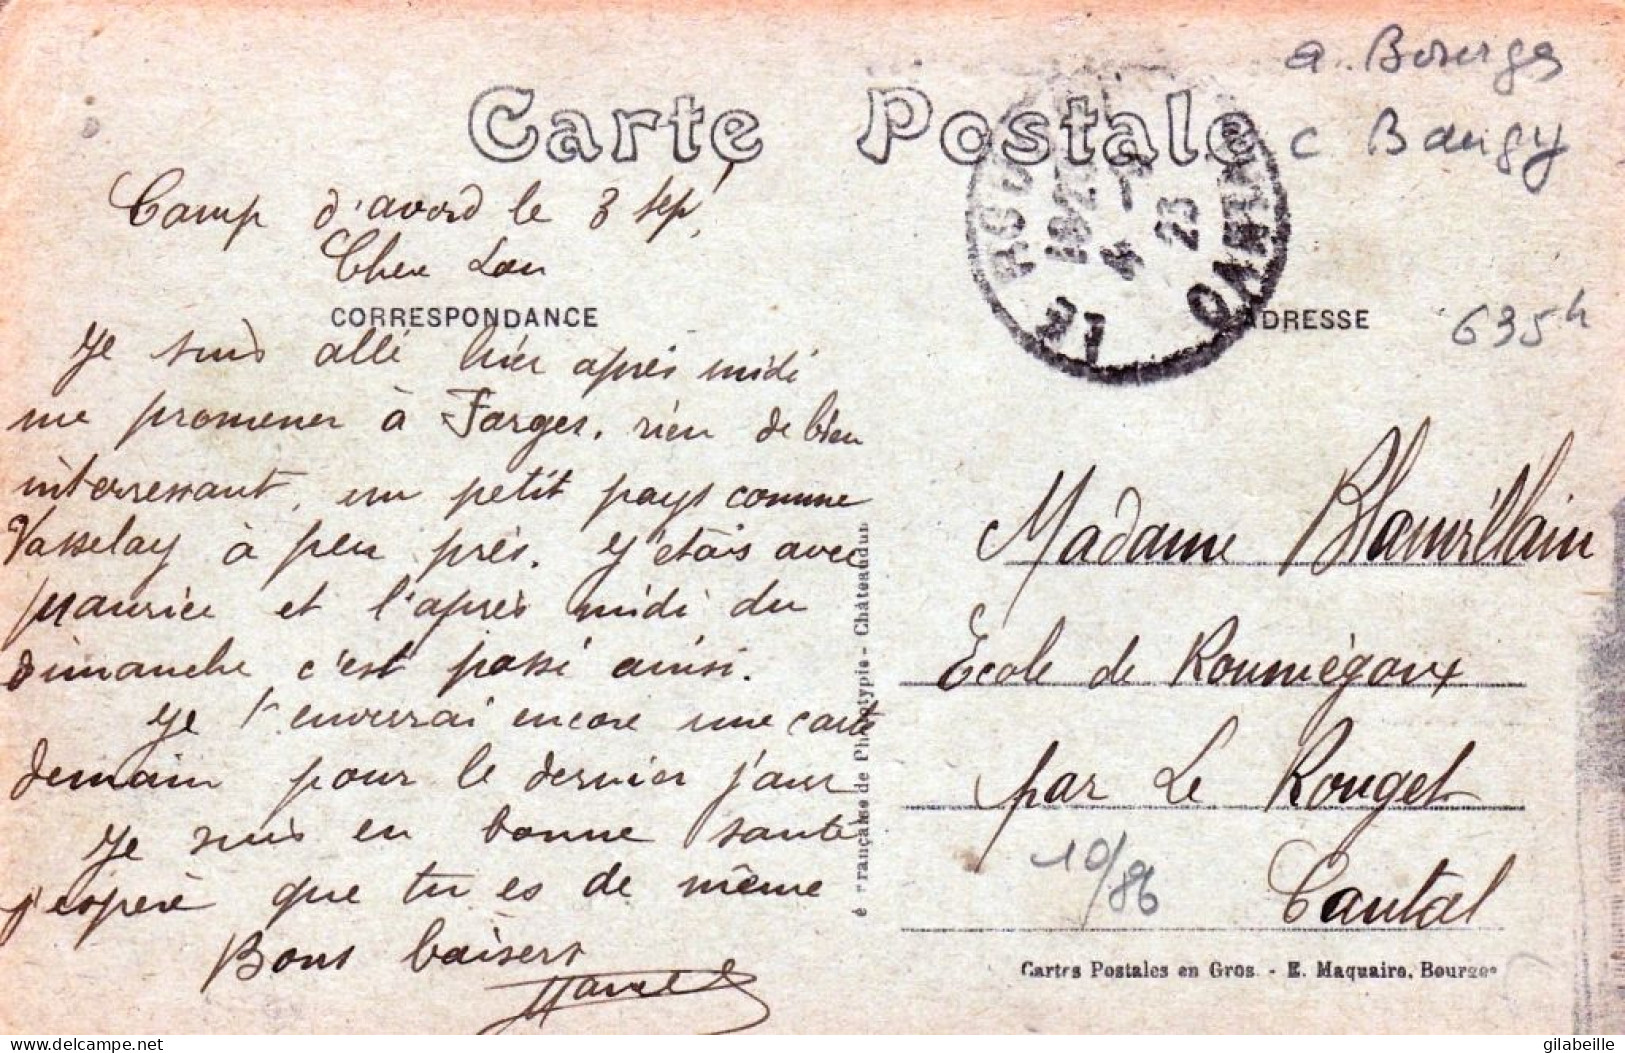 Carte Postale
a. Bourges
c Baugy
Camp d'avord le 3 sept
Cher Lou
CORRESPONDANCE
Je suis allé hier après midi
me promener à Farges. rien de bien
interressant, un petit pays comme
Vasselay à peu près. J'étais avec
Maurice et l'après midi du
dimanche c'est passé ainsi.
Je t'enverrai encore une carte
demain pour le dernier jour
Je suis en bonne santé
j'espère que tu es de même
Bons baisers
Marcel
é Française de Phototypie - Châteaudun
LE
CANTAL
4 - 9
23
ADRESSE
635h
Madame Blanvillain
Ecole de Roumégoux
par Le Rouget
Cantal
10/86
Cartes Postales en Gros - E. Maquaire, Bourges
https://www.delcampe.net
gilabeille